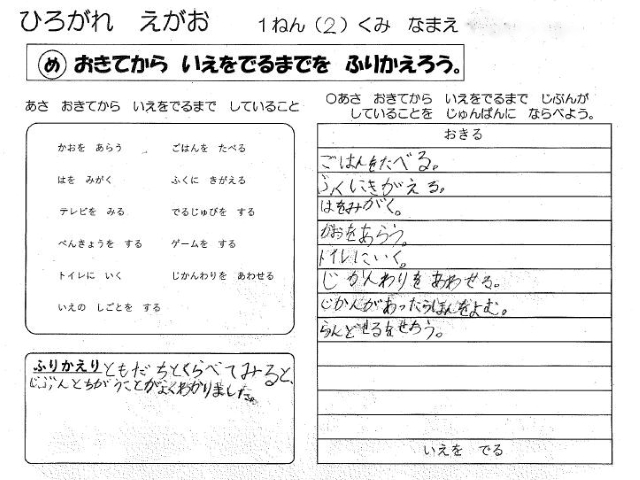 ひろがれ えがお 1ねん(2)くみ なまえ
め おきてから いえをでるまでを ふりかえろう。
あさ おきてから いえをでるまで していること
かおを あらう ごはんを たべる
はを みがく ふくに きがえる
テレビを みる でるじゅびを する
べんきょうを する ゲームを する
トイレに いく じかんわりを あわせる
いえの しごとを する
ふりかえり ともだちとくらべてみると、
じぶんとちがうことがよくわかりました。
○あさ おきてから いえをでるまで じぶんが
していることを じゅんばんに ならべよう。
おきる
ごはんをたべる。
ふくにきがえる。
はをみがく。
かおをあらう。
トイレにいく。
じかんわりをあわせる。
じかんがあったらほんをよむ。
らんどせるをせおう。
いえを でる